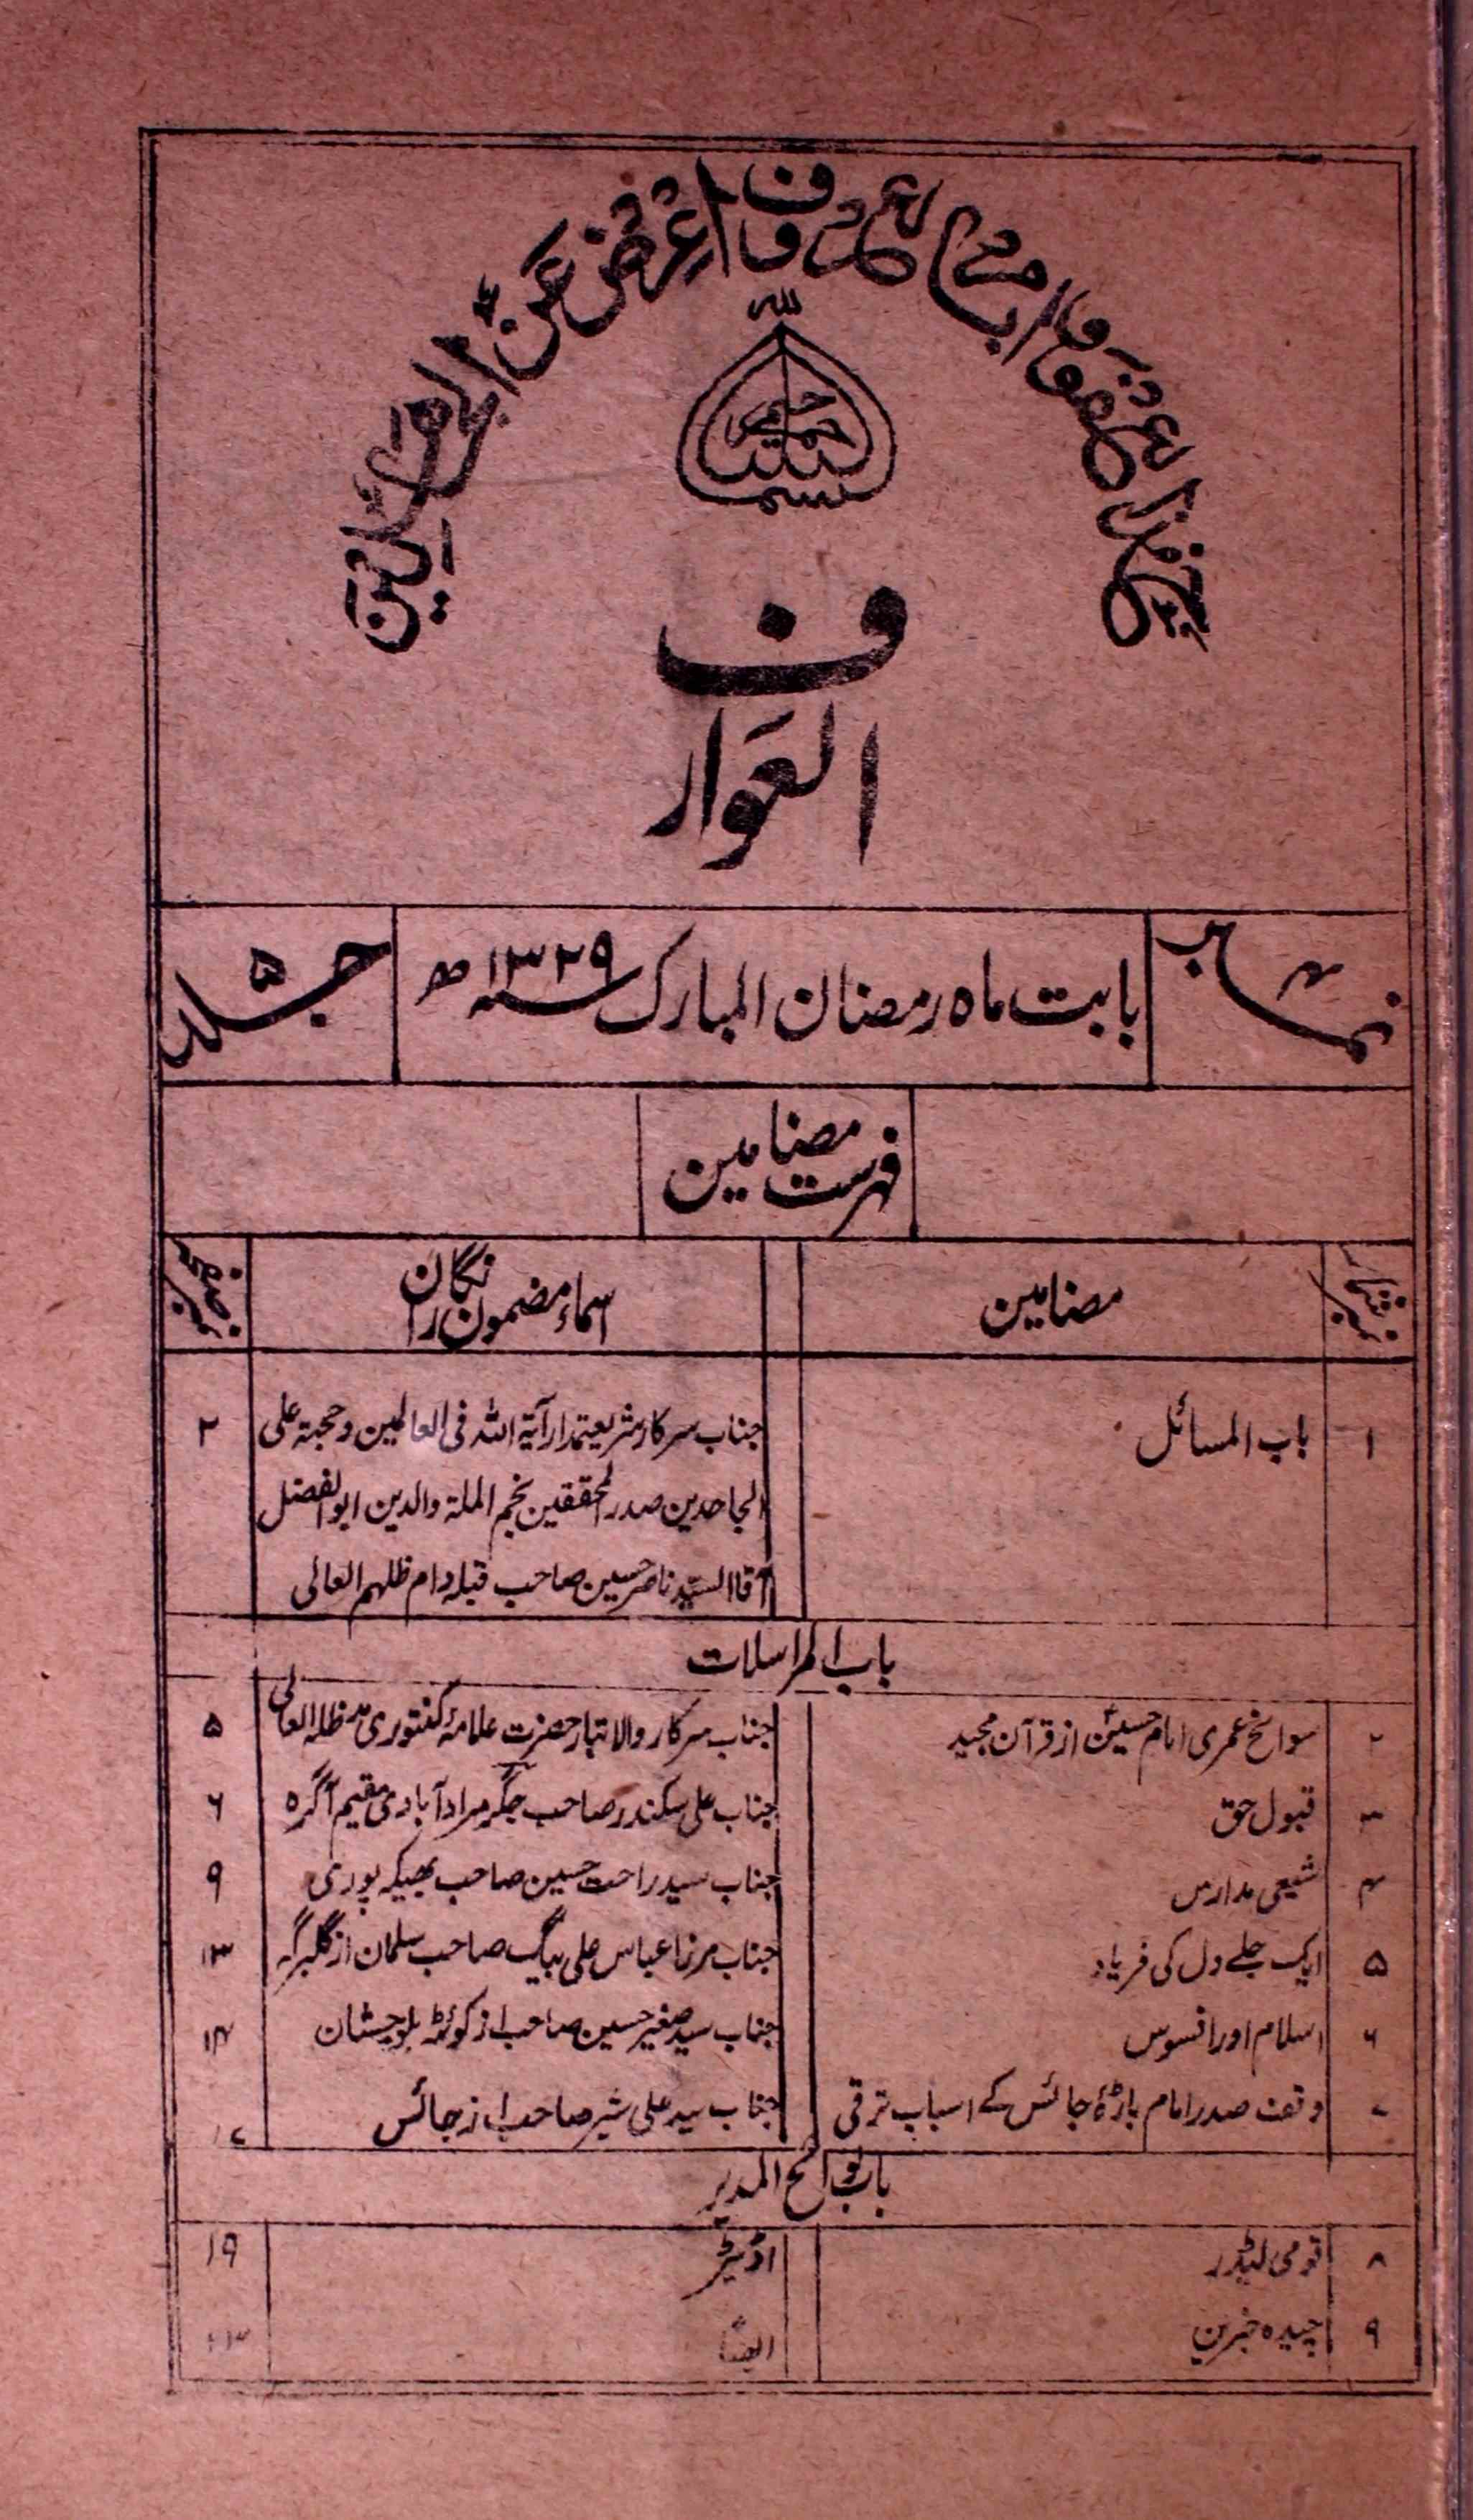 خذ العفو وأمر بالعرف وأعرض عن الجاهلين
بسم الله الرحمن الرحيم
العوارف
نمبر ۴
بابت ماہ رمضان المبارک سنہ ۱۳۲۹ھ
جلد ۵
فہرست مضامین
نمبر شمار | مضامین | اسماء مضمون نگاران | نمبر صفحہ
۱ | باب المسائل | جناب سرکار شریعتمدار آیۃ اللہ فی العالمین و حجتہ علی | ۲
الجاحدین صدر المحققین نجم الملۃ والدین ابوالفضل
آقا السید ناصر حسین صاحب قبلہ دام ظلہم العالی
باب المراسلات
۲ | سوانح عمری امام حسینؑ از قرآن مجید | جناب سرکار والا تبار حضرت علامۂ کنتوری مدظلہ العالی | ۵
۳ | قبول حق | جناب علی سکندر صاحب جگر مرادآبادی مقیم آگرہ | ۶
۴ | شیعی مدارس | جناب سید راحت حسین صاحب بھیکپوری | ۹
۵ | ایک جلے دل کی فریاد | جناب مرزا عباس علی بیگ صاحب سلمان از گلبرگہ | ۱۳
۶ | اسلام اور افسوس | جناب سید صغیر حسین صاحب از کوئٹہ بلوچستان | ۱۴
۷ | وقف صدر امام باڑۂ جائس کے اسباب ترقی | جناب سید علی شیر صاحب از جائس | ۱۷
باب لوائح المدیر
۸ | قومی لیڈر | اڈیٹر | ۱۹
۹ | چیدہ خبریں | ایضاً